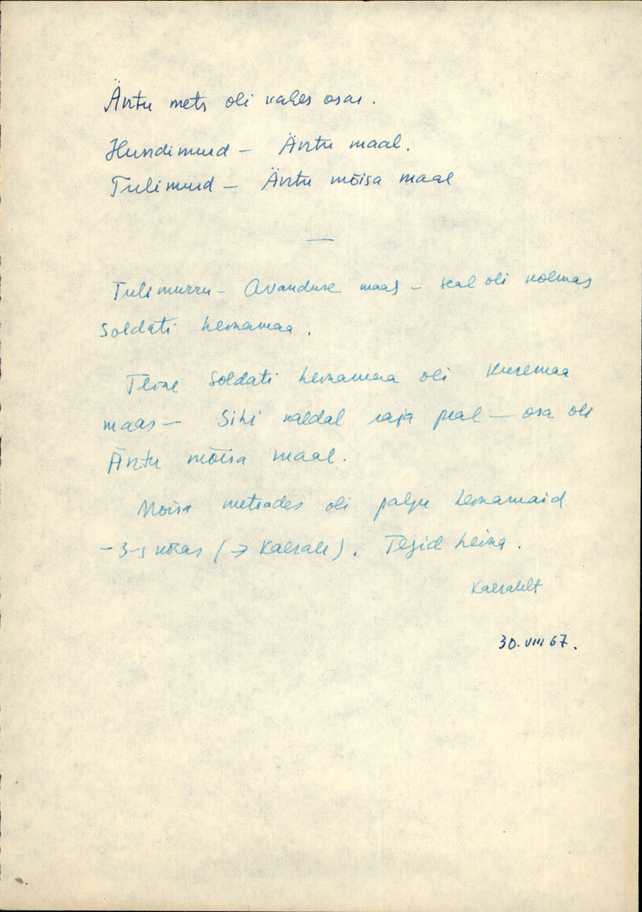 Äntu mets oli kahes osas.
Hundimurd – Äntu maal.
Tulimurd – Äntu mõisa maal
—
Tulimurru – Avanduse maas – seal oli kolmas
Soldati heinamaa.
Teine Soldati heinamaa oli Kuremaa
maas – Sihi raja peal – osa oli
Äntu mõisa maal.
Mõisa metsades oli palju heinamaid
– 3-s (→ Kaesale). Tegid heina.
30.VIII 67.